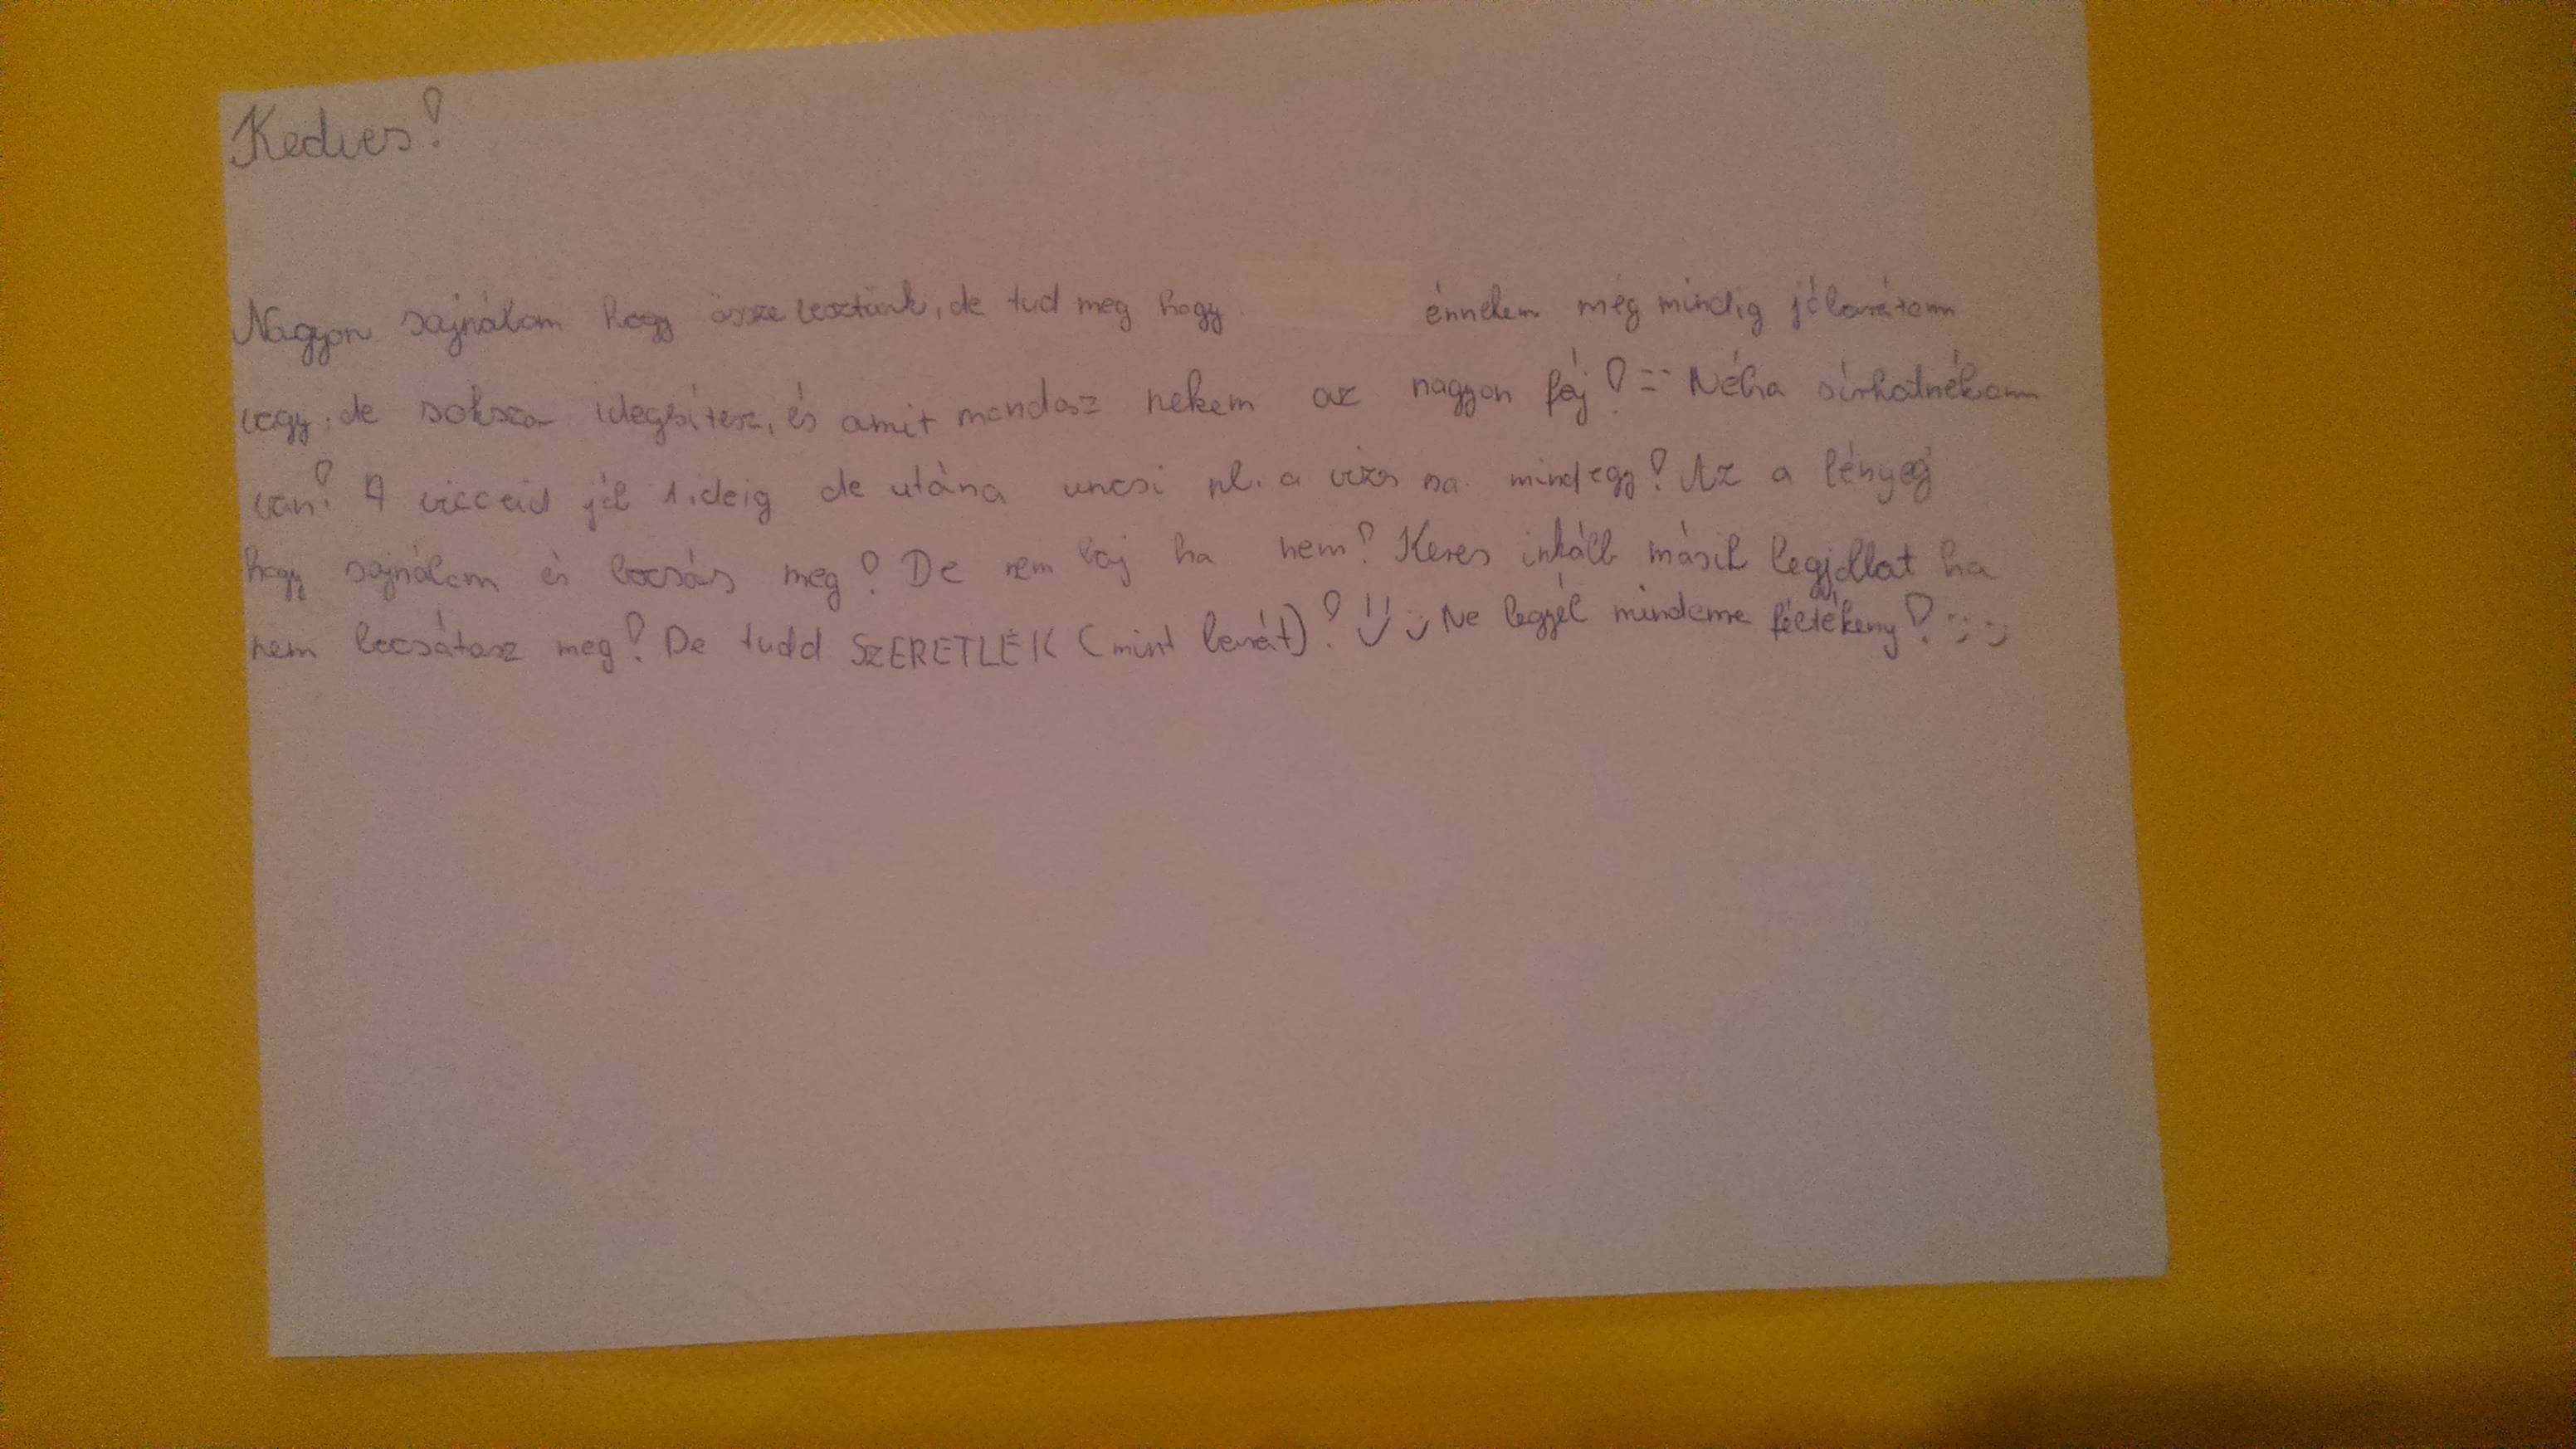 Kedves!
Nagyon sajnálom hogy össze vesztünk, de tud meg hogy énnekem még mindig jóbarátom
vagy, de soksza idegsítesz, és amit mondasz nekem az nagyon fáj! Néha sírhatnékom
van! A vicceid jól 1.ideig de utána uncsi pl. a vizes na mindegy! Az a lényeg
hogy sajnálom és bocsás meg! De nem baj ha nem! Keres inkább másik legjobbat ha
nem bocsátasz meg! De tudd SZERETLEK (mint barát)! Ne legyél mindenre féltékeny!